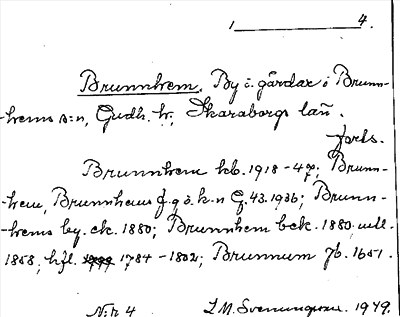 1 4.
Brunnhem. By o. gårdar i Brunn-
-hems s:n, Gudh. hd, Skaraborgs län.
forts.
Brunnhem kb. 1918-47; Brunn-
hem, Brunnhems f g o. k.n G. 43. 1936; Brunn-
-hems by. ek. 1880; Brunnhem bek. 1880.
1858, hfl. 1784-1802; Brunnum jb. 1651.
N:r 4 I.M. Svenungsson. 1949.